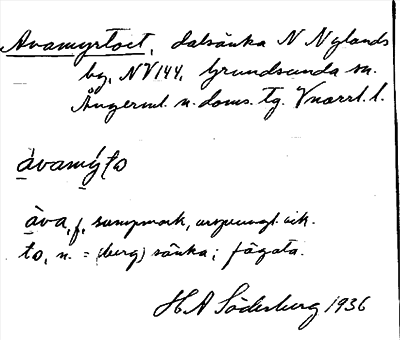 Avamyrtoet, dalsänka N Nylands
by, NV144, Grundsunda sn.
Ångerml. n. doms. tg. Vnorrl. l.
àvamỵ́to
àva, f, sumpmark, urspungl. vik.
to, n. = (berg) sänka; fågata.
H A Söderberg 1936